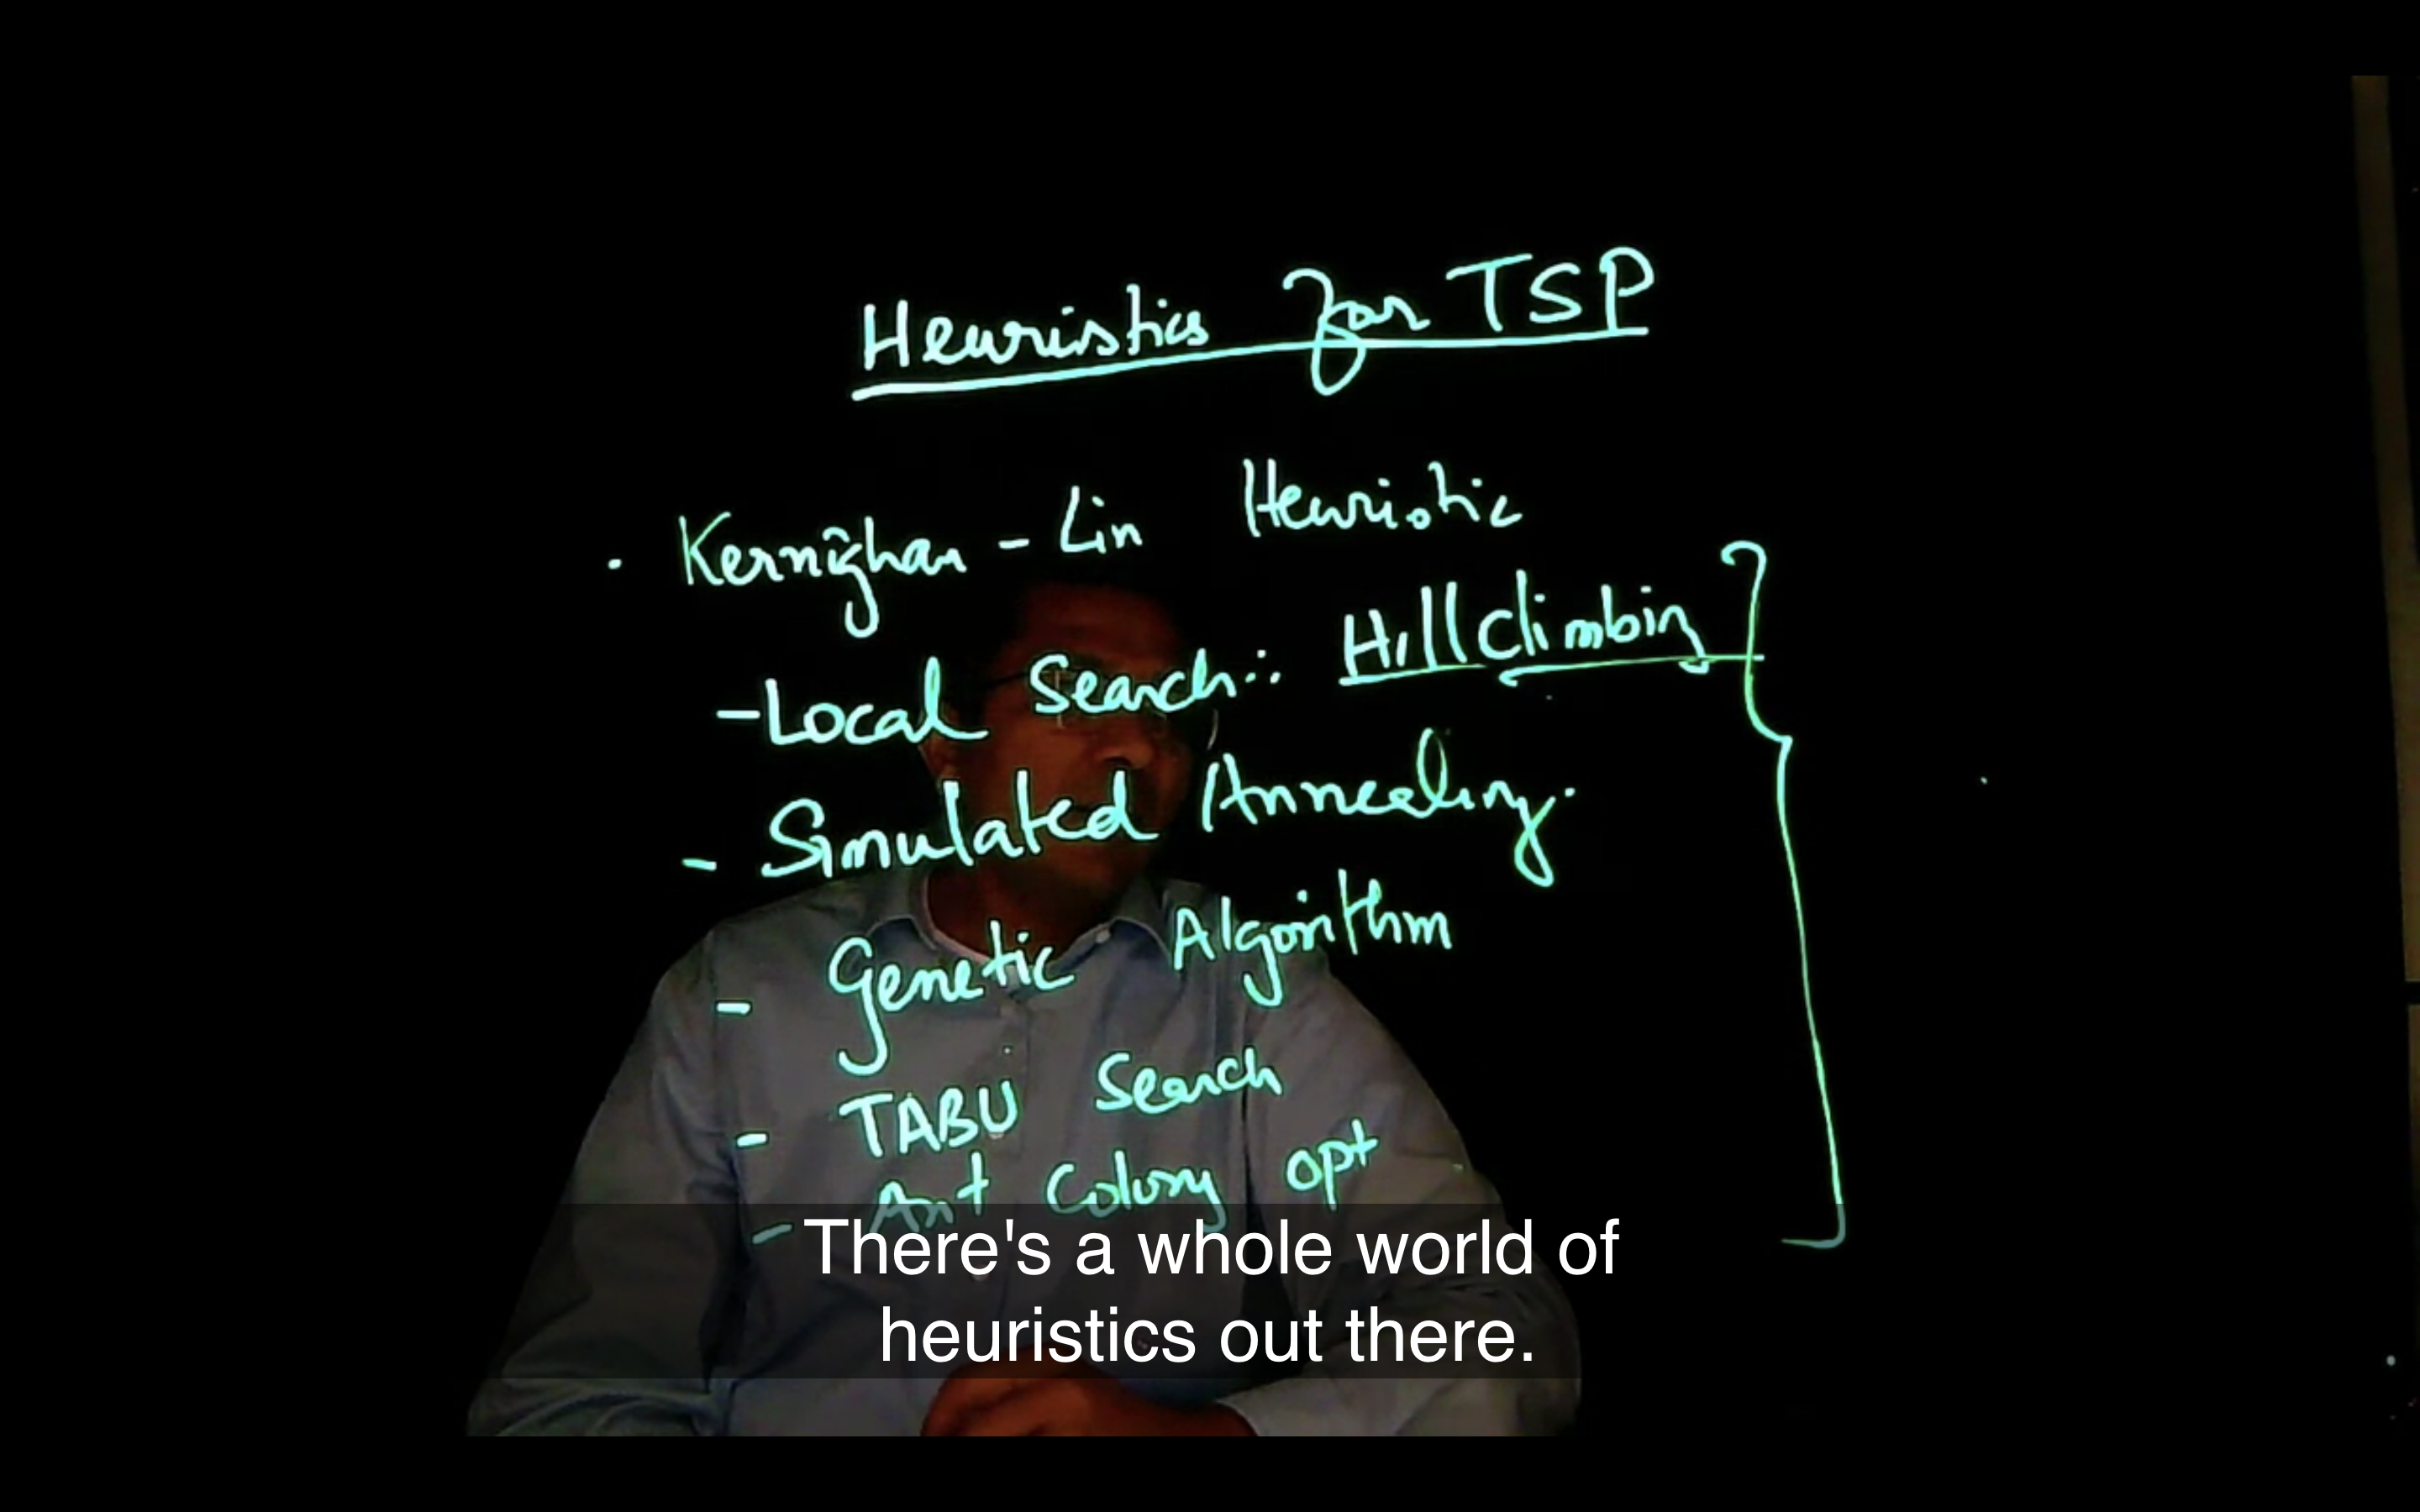 Heuristics for TSP
· Kernighan - Lin Heuristic
- Local Search: Hill Climbing
- Simulated Annealing.
- Genetic Algorithm
- TABU Search
- Ant Colony opt
There's a whole world of
heuristics out there.